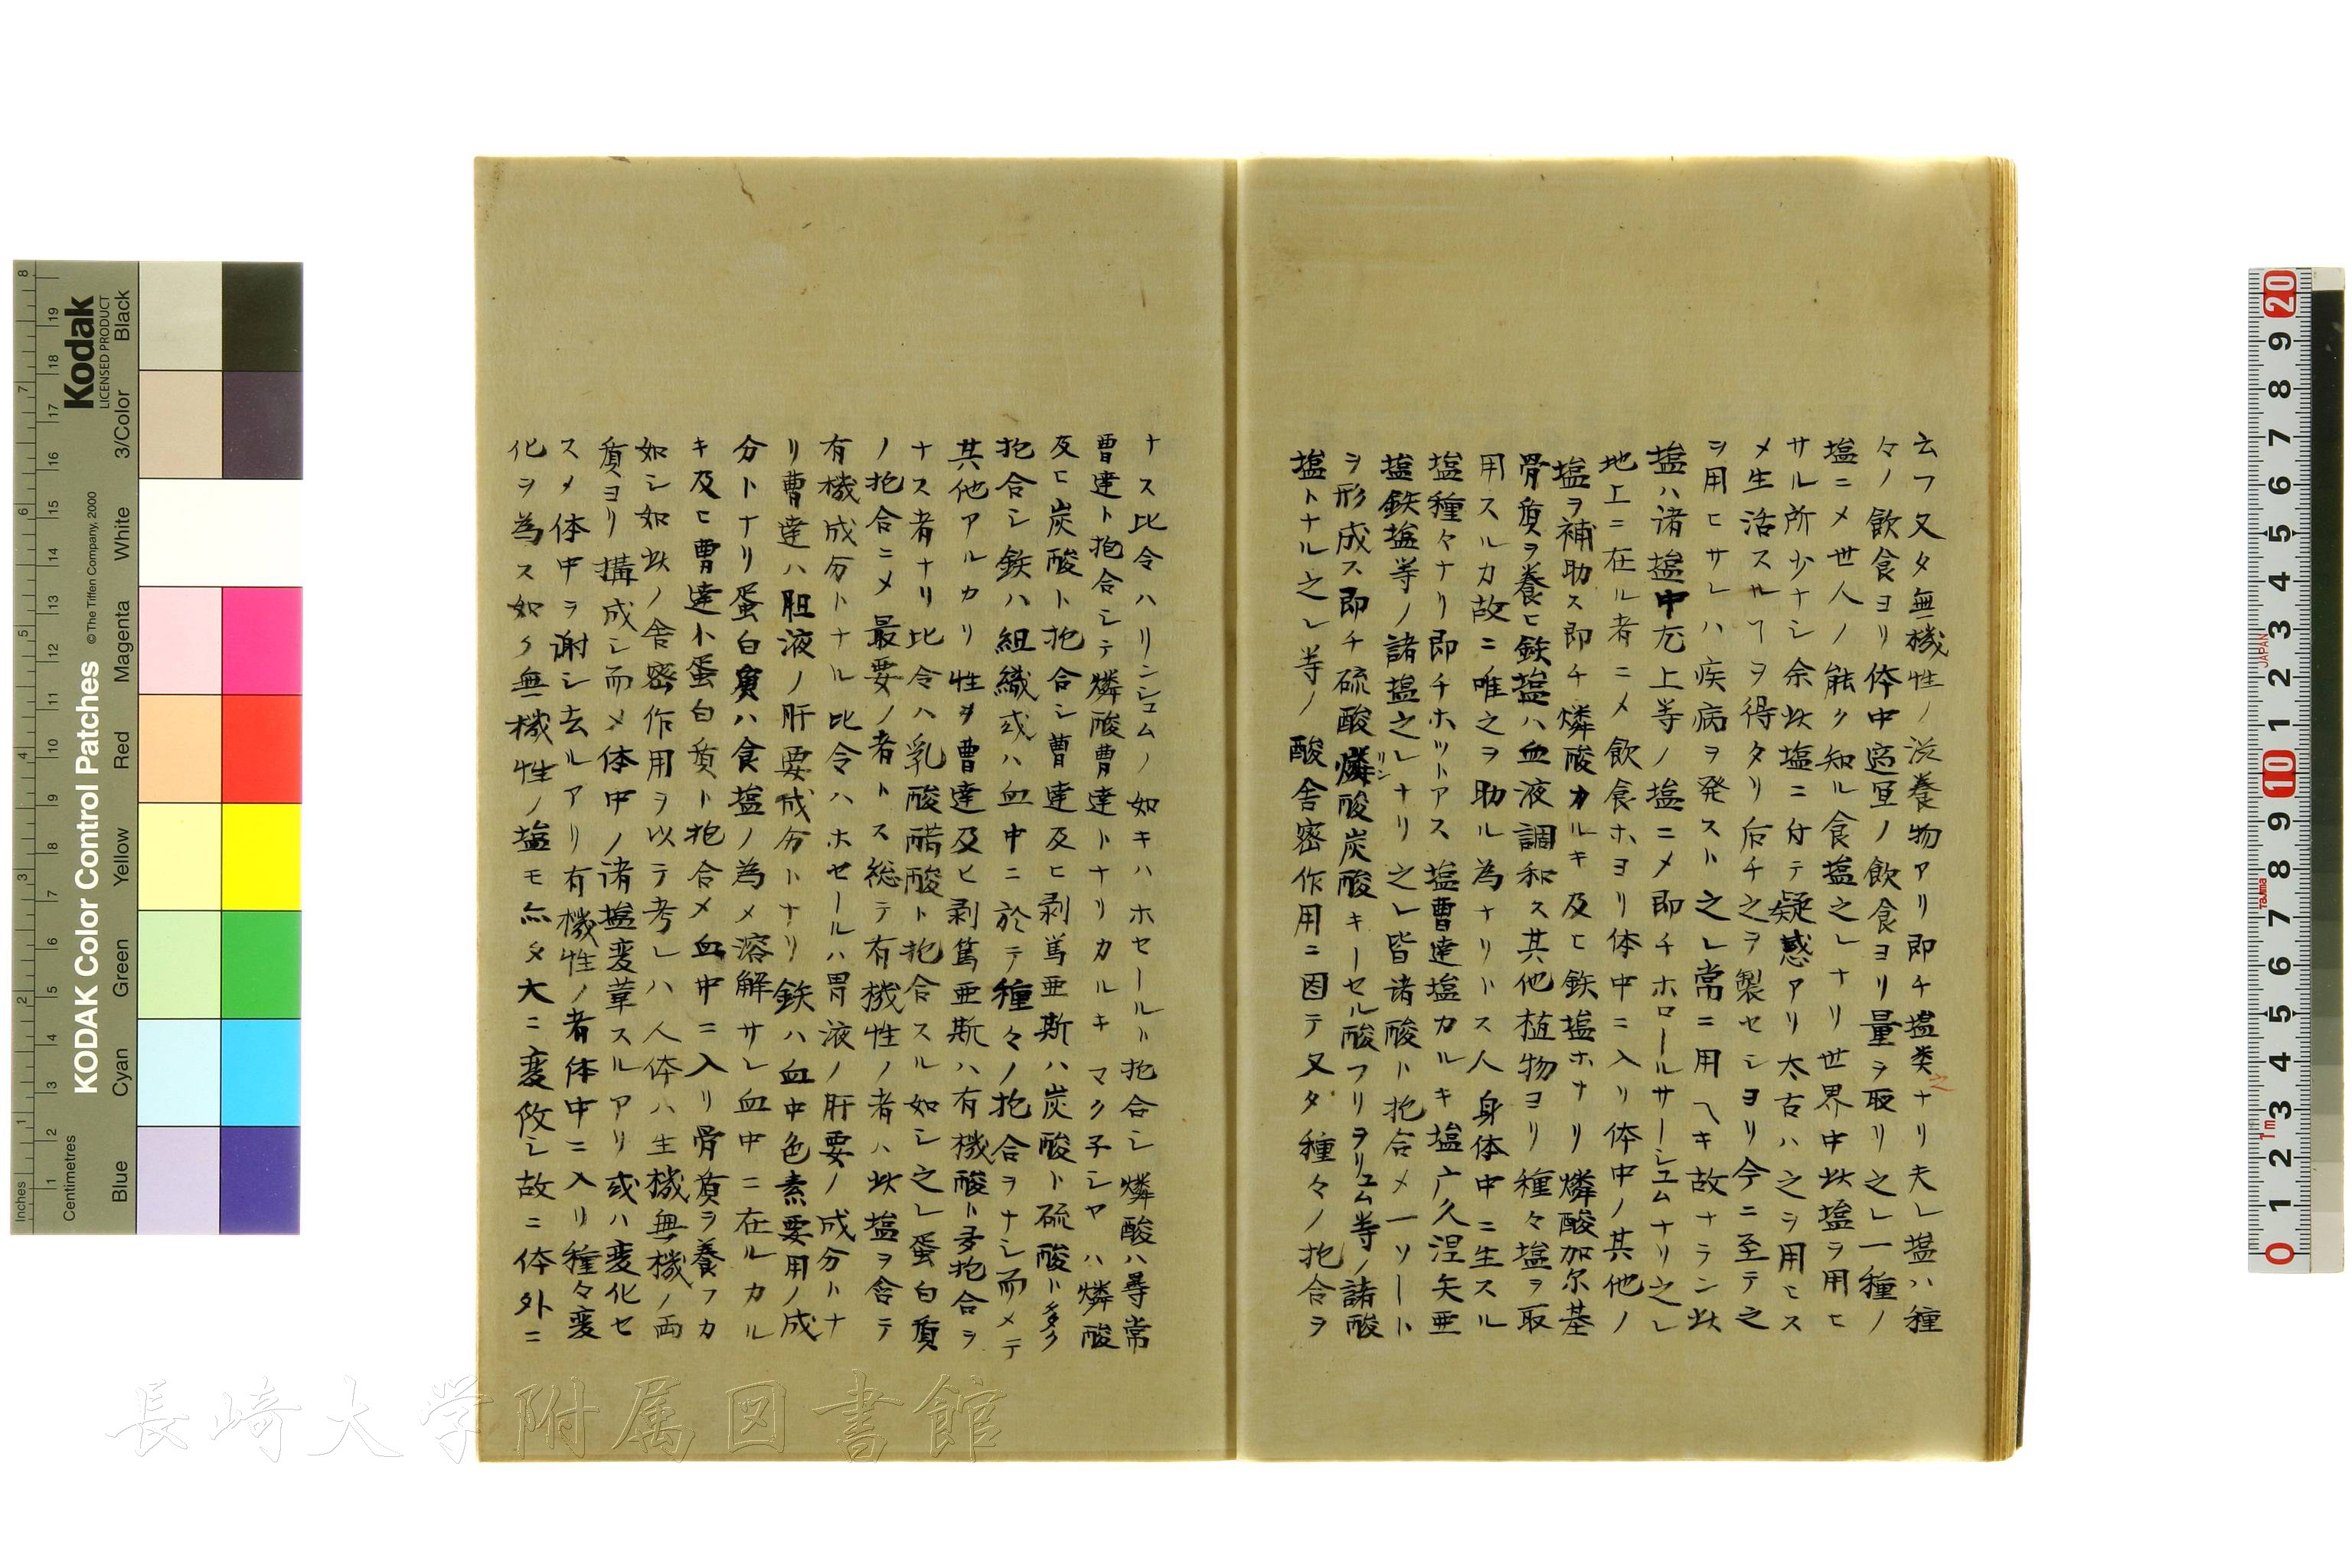 云フ又タ無機性ノ滋養物アリ即チ塩類之ナリ夫レ塩ハ種
々ノ飲食ヨリ体中適宜ノ飲食ヨリ量ヲ取リ之レ一種ノ
塩ニメ世人ノ能ク知ル食塩之レナリ世界中此塩ヲ用ヒ
サル所少ナシ余此塩ニ付テ疑惑アリ太古ハ之ヲ用ヒス
メ生活スルヿヲ得タリ后チ之ヲ製セシヨリ今ニ至テ之
ヲ用ヒサレハ疾病ヲ発スト之レ常ニ用ヘキ故ナラン此
塩ハ諸塩中尤上等ノ塩ニメ即チホロールサーシユムナリ之レ
地上ニ在ル者ニメ飲食ホヨリ体中ニ入リ体中ノ其他ノ
塩ヲ補助ス即チ燐酸カルキ及ヒ鉄塩ホナリ燐酸加尔基
骨質ヲ養ヒ鉄塩ハ血液調和ス其他植物ヨリ種々塩ヲ取
用スルカ故ニ唯之ヲ助ル為ナリトス人身体中ニ生スル
塩種々ナリ即チホットアス塩曹達塩カルキ塩广久涅矢亜
塩鉄塩等ノ諸塩之レナリ之レ皆諸酸ト抱合メ一ソート
ヲ形成ス即チ硫酸燐酸炭酸キーセル酸フリヲリユム等ノ諸酸
リン
塩トナル之レ等ノ酸舎密作用ニ因テ又タ種々ノ抱合ヲ
ナス比令ハリンシユムノ如キハホセールト抱合シ燐酸ハ尋常
曹達ト抱合シテ燐酸曹達トナリカルキマク子シヤハ燐酸
及ヒ炭酸ト抱合シ曹達及ヒ剥篤亜斯ハ炭酸ト硫酸ト多ク
抱合シ鉄ハ組織或ハ血中ニ於テ種々ノ抱合ヲナシ而メテ
其他アルカリ性ヲ曹達及ヒ剥篤亜斯ハ有機酸ト多抱合ヲ
ナス者ナリ比令ハ乳酸醋酸ト抱合スル如シ之レ蛋白質
ノ抱合ニメ最要ノ者トス総テ有機性ノ者ハ此塩ヲ含テ
有機成分トナル比令ハホセールハ胃液ノ肝要ノ成分トナ
リ曹達ハ胆液ノ肝要成分トナリ鉄ハ血中色素要用ノ成
分トナリ蛋白質ハ食塩ノ為メ溶解サレ血中ニ在ルカル
キ及ヒ曹達ト蛋白質ト抱合メ血中ニ入リ骨質ヲ養フカ
如シ如此ノ舎密作用ヲ以テ考レハ人体ハ生機無機ノ両
質ヨリ搆成シ而メ体中ノ諸塩変革スルアリ或ハ変化セ
スメ体中ヲ謝シ去ルアリ有機性ノ者体中ニ入リ種々変
化ヲ為ス如ク無機性ノ塩モ亦タ大ニ変攸シ故ニ体外ニ
Kodak
LICENSED PRODUCT
KODAK Color Control Patches
© The Tiffen Company, 2000
Black
3/Color
White
Magenta
Red
Yellow
Green
Cyan
Blue
Inches
Centimetres
JAPAN
Tajima
長崎大学附属図書館